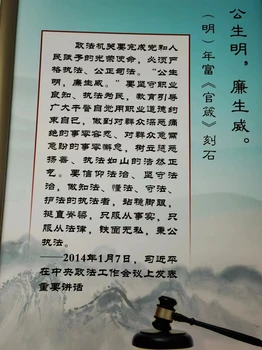 公生明，廉生威。
（明）年富《官箴》刻石
政法机关要完成党和人
民赋予的光荣使命，必须严
格执法、公正司法。“公生
明，廉生威。”要坚守职业
良知、执法为民，教育引导
广大干警自觉用职业道德约
束自己，做到对群众深恶痛
绝的事零容忍、对群众急需
急盼的事零懈怠，树立惩恶
扬善、执法如山的浩然正
气。要信仰法治、坚守法
治，做知法、懂法、守法、
护法的执法者，站稳脚跟，
挺直脊梁，只服从事实，只
服从法律，铁面无私，秉公
执法。
——2014年1月7日，习近平
在中央政法工作会议上发表
重要讲话